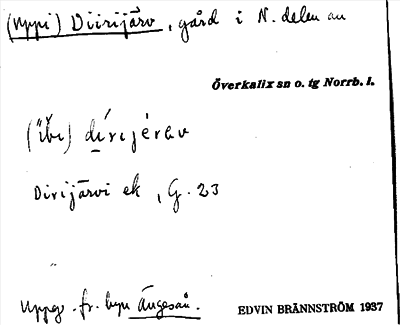 (Uppi) Diirijärv, gård i N. delen av
Överkalix sn o. tg Norrb. l.
(ïbɩ) dírijèrəv
Dirijärvi ek, G. 23
Uppg. fr. byn Ängeså.
EDVIN BRÄNNSTRÖM 1937